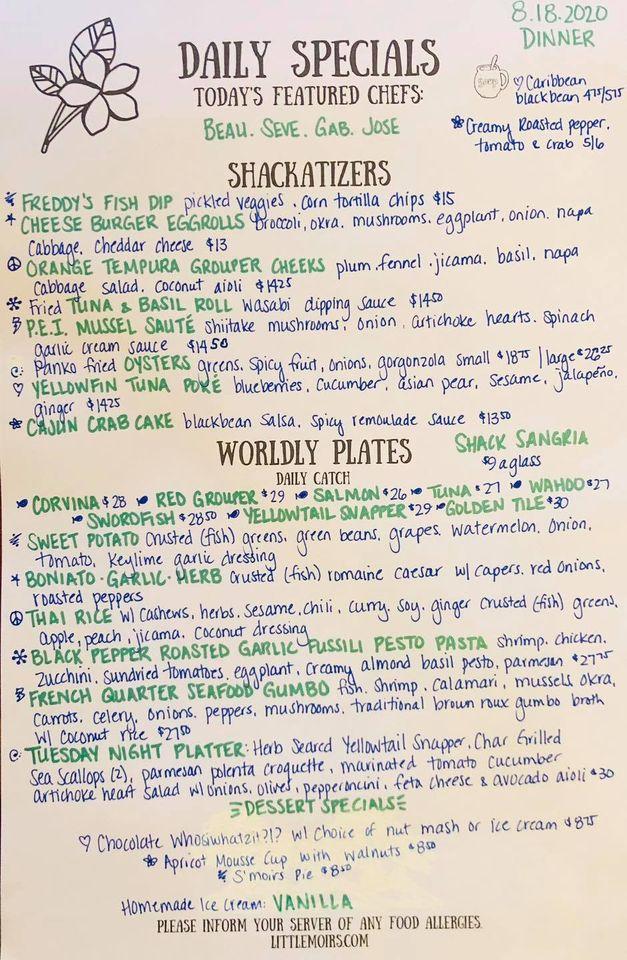 8.18.2020
DINNER
DAILY SPECIALS
TODAY'S FEATURED CHEFS:
BEAU. SEVE. GAB. JOSE
♡ Caribbean
blackbean 475/575
Creamy Roasted pepper,
tomato & crab 5/6
SHACKATIZERS
FREDDY'S FISH DIP pickled veggies, corn tortilla chips $15
* CHEESE BURGER EGGROLLS broccoli, okra, mushrooms, eggplant, onion, napa
Cabbage, Cheddar cheese $13
☮ ORANGE TEMPURA GROUPER CHEEKS plum, fennel, jicama, basil, napa
Cabbage salad, coconut aioli $1425
Fried TUNA & BASIL ROLL wasabi dipping sauce $1450
P.E.I. MUSSEL SAUTÉ shiitake mushrooms, onion, artichoke hearts, spinach
garlic cream sauce $1450
Panko fried OYSTERS greens, spicy fruit, onions, gorgonzola small $1875 | large $2625
♡ YELLOWFIN TUNA POKÉ blueberries, cucumber, asian pear, sesame, jalapeño,
ginger $1425
CAJUN CRAB CAKE blackbean salsa, spicy remoulade sauce $1350
WORLDLY PLATES
DAILY CATCH
SHACK SANGRIA
$9 a glass
CORVINA $28 RED GROUPER $29 SALMON $26 TUNA $27 WAHOO $27
SWORDFISH $2850 YELLOWTAIL SNAPPER $29 GOLDEN TILE $30
SWEET POTATO crusted (fish) greens, green beans, grapes, watermelon, onion,
tomato, keylime garlic dressing
* BONIATO·GARLIC·HERB crusted (fish) romaine caesar w/ capers, red onions,
roasted peppers
☮ THAI RICE w/ cashews, herbs, sesame, chili, curry, soy, ginger crusted (fish) greens,
apple, peach, jicama, coconut dressing
BLACK PEPPER ROASTED GARLIC FUSSILI PESTO PASTA shrimp, chicken,
zucchini, sundried tomatoes, eggplant, creamy almond basil pesto, parmesan $2775
FRENCH QUARTER SEAFOOD GUMBO fish, shrimp, calamari, mussels okra,
carrots, celery, onions, peppers, mushrooms, traditional brown roux gumbo broth
w/ coconut rice $2750
TUESDAY NIGHT PLATTER: Herb Seared Yellowtail Snapper, Char Grilled
Sea Scallops (2), parmesan polenta croquette, marinated tomato cucumber
artichoke heart salad w/ onions, olives, pepperoncini, feta cheese & avocado aioli $30
DESSERT SPECIALS
♡ Chocolate Whosiwhatzit?!? w/ choice of nut mash or ice cream $875
Apricot Mousse Cup with walnuts $850
S'moirs Pie $850
Homemade Ice Cream: VANILLA
PLEASE INFORM YOUR SERVER OF ANY FOOD ALLERGIES.
LITTLEMOIRS.COM